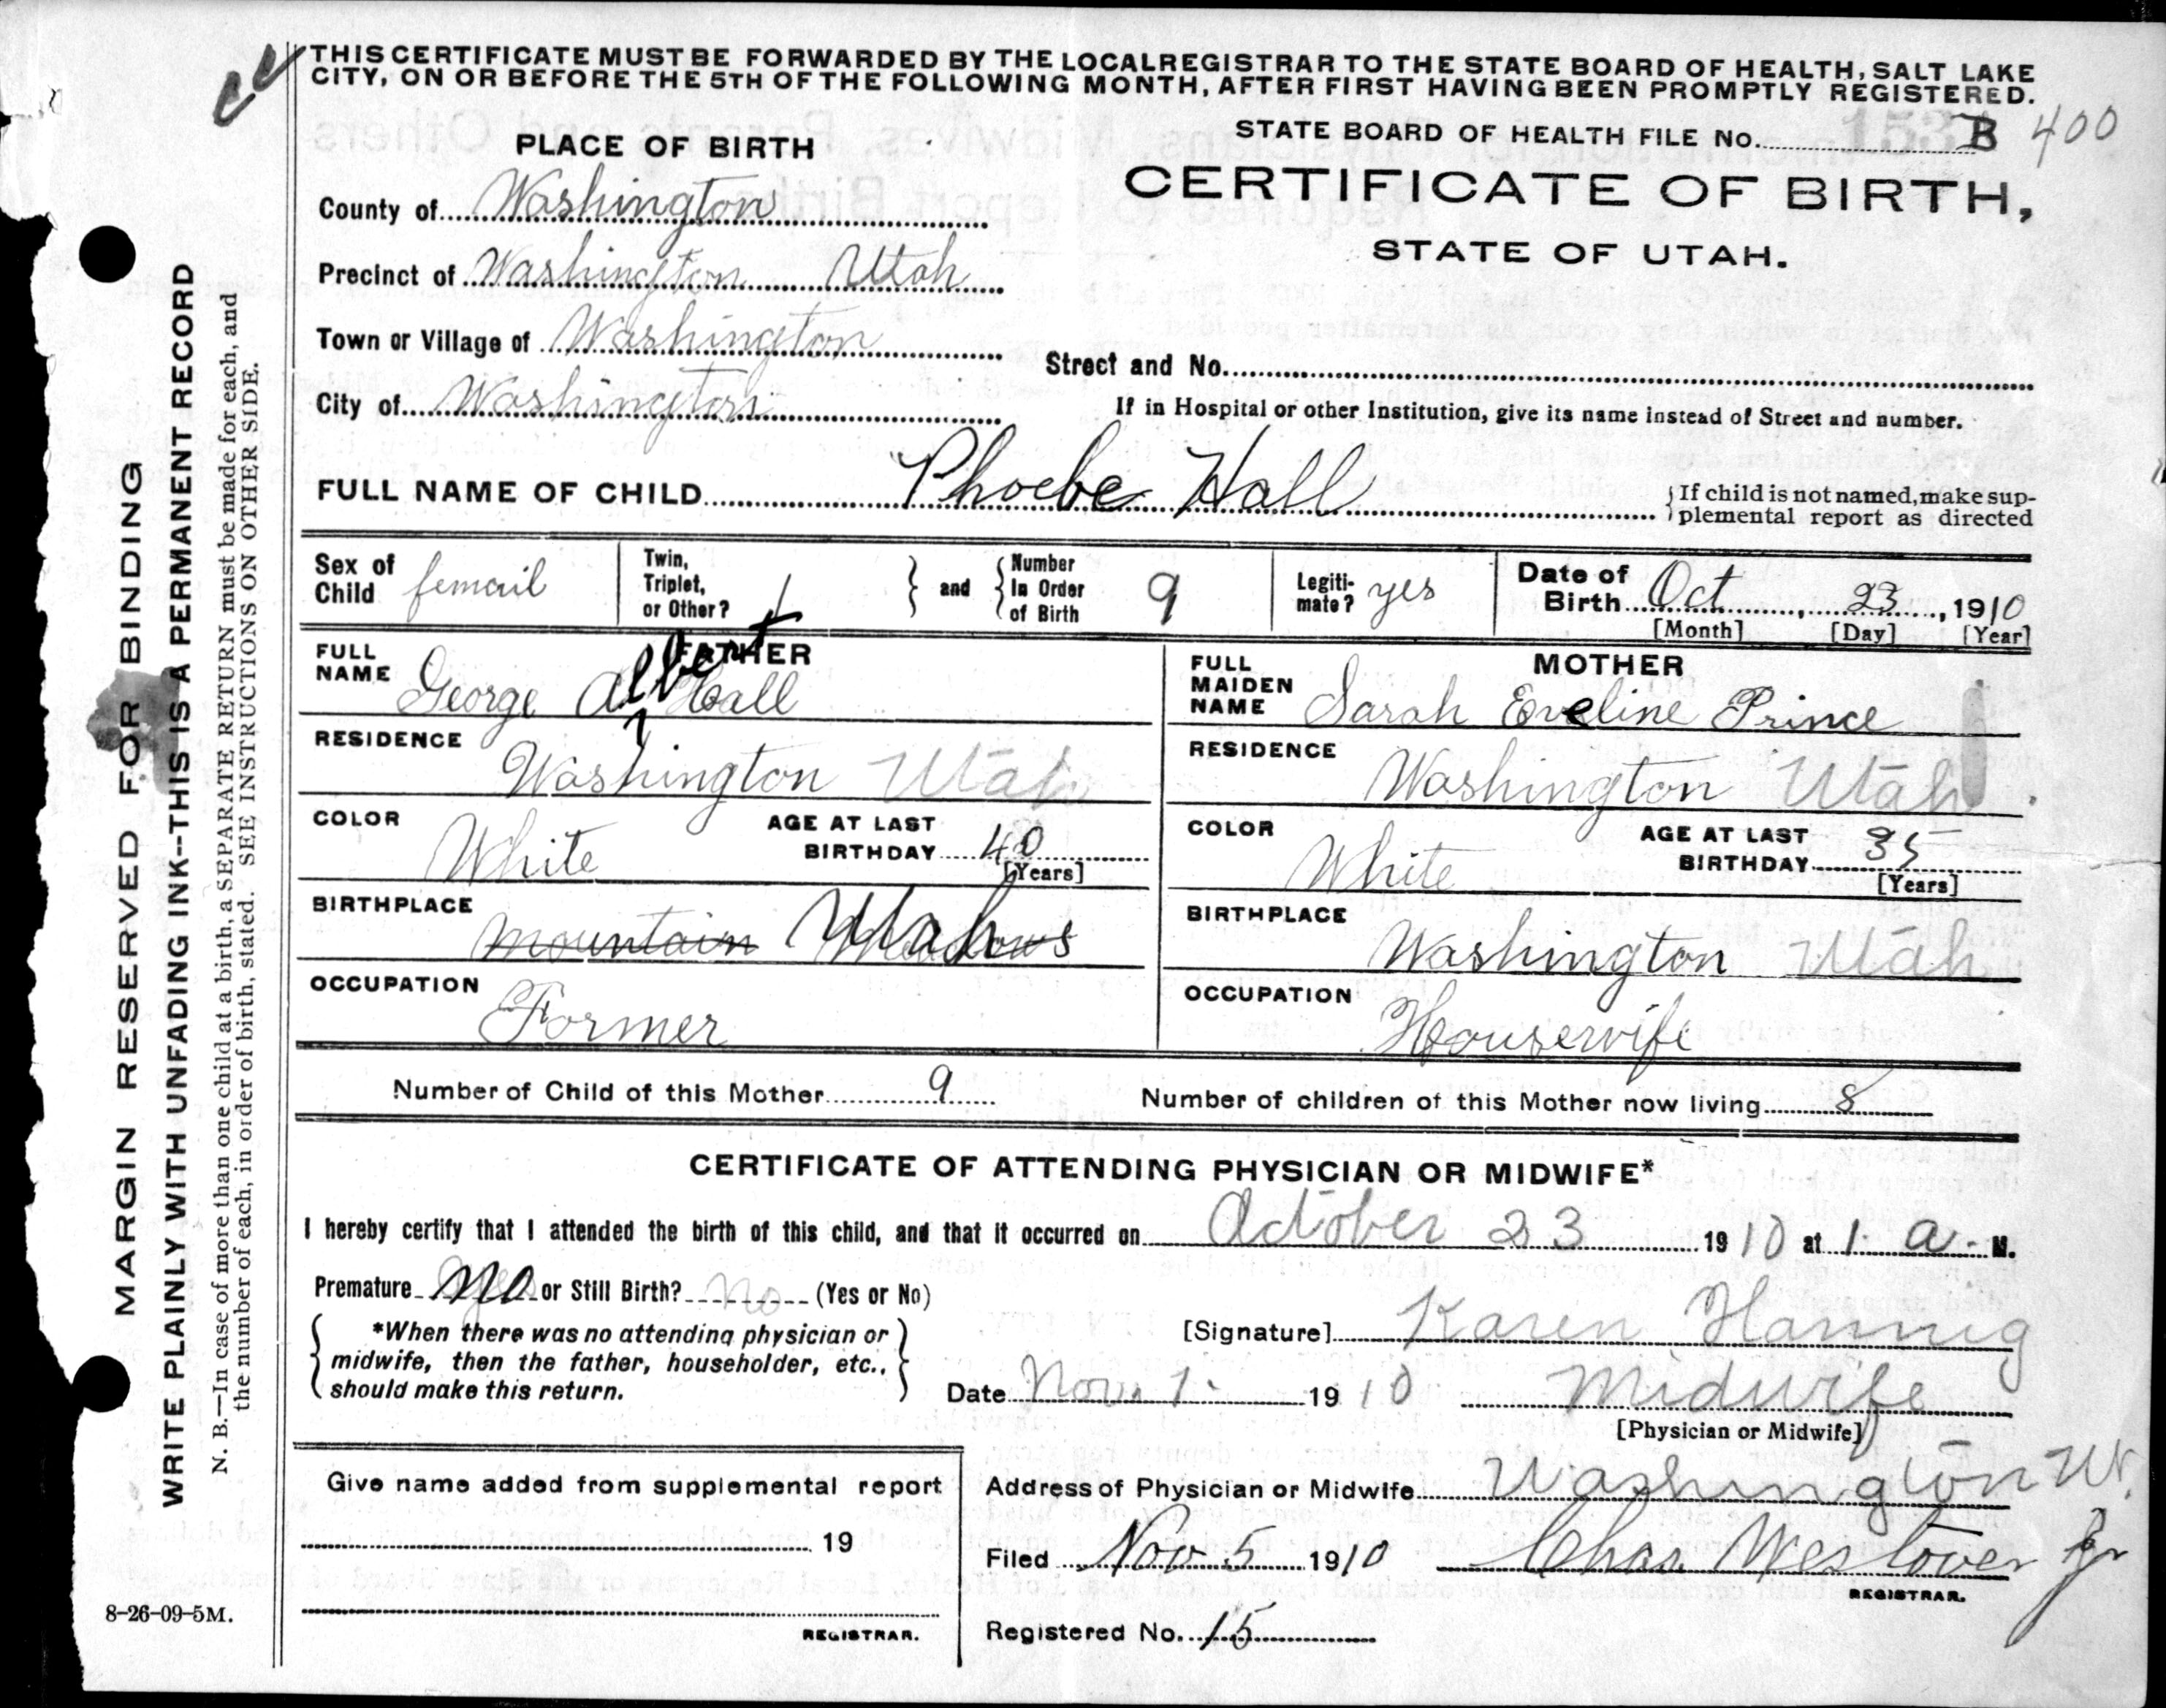 THIS CERTIFICATE MUST BE FORWARDED BY THE LOCAL REGISTRAR TO THE STATE BOARD OF HEALTH, SALT LAKE
CITY, ON OR BEFORE THE 5TH OF THE FOLLOWING MONTH, AFTER FIRST HAVING BEEN PROMPTLY REGISTERED.
PLACE OF BIRTH
STATE BOARD OF HEALTH FILE No. B 400
CERTIFICATE OF BIRTH,
STATE OF UTAH.
County of Washington
Precinct of Washington Utah
Town or Village of Washington
Street and No.
City of Washington
If in Hospital or other Institution, give its name instead of Street and number.
FULL NAME OF CHILD Phoebe Hall
{If child is not named, make sup-
plemental report as directed
Sex of Child femail
Twin, Triplet, or Other? 1
and
Number In Order of Birth 9
Legiti-mate? yes
Date of Birth Oct, 23, 1910
[Month] [Day] [Year]
FATHER
FULL NAME George Albert Hall
MOTHER
FULL MAIDEN NAME Sarah Eveline Prince
RESIDENCE Washington Utah
RESIDENCE Washington Utah
COLOR White
AGE AT LAST BIRTHDAY 40 [Years]
COLOR White
AGE AT LAST BIRTHDAY 35 [Years]
BIRTHPLACE mountain Meadows Utah
BIRTHPLACE Washington Utah
OCCUPATION Farmer
OCCUPATION Housewife
Number of Child of this Mother 9
Number of children of this Mother now living 8
CERTIFICATE OF ATTENDING PHYSICIAN OR MIDWIFE*
I hereby certify that I attended the birth of this child, and that it occurred on October 23 1910 at 1 a. M.
Premature no or Still Birth? no (Yes or No)
*When there was no attending physician or
midwife, then the father, householder, etc.,
should make this return.
[Signature] Karen Hannig
Date Nov. 1. 1910
Midwife
[Physician or Midwife]
Give name added from supplemental report
19
REGISTRAR.
Address of Physician or Midwife Washington Ut.
Filed Nov 5 1910 Chas Westover Jr
REGISTRAR.
Registered No. 15
8-26-09-5M.
MARGIN RESERVED FOR BINDING
WRITE PLAINLY WITH UNFADING INK--THIS IS A PERMANENT RECORD
N. B.—In case of more than one child at a birth, a SEPARATE RETURN must be made for each, and
the number of each, in order of birth, stated. SEE INSTRUCTIONS ON OTHER SIDE.